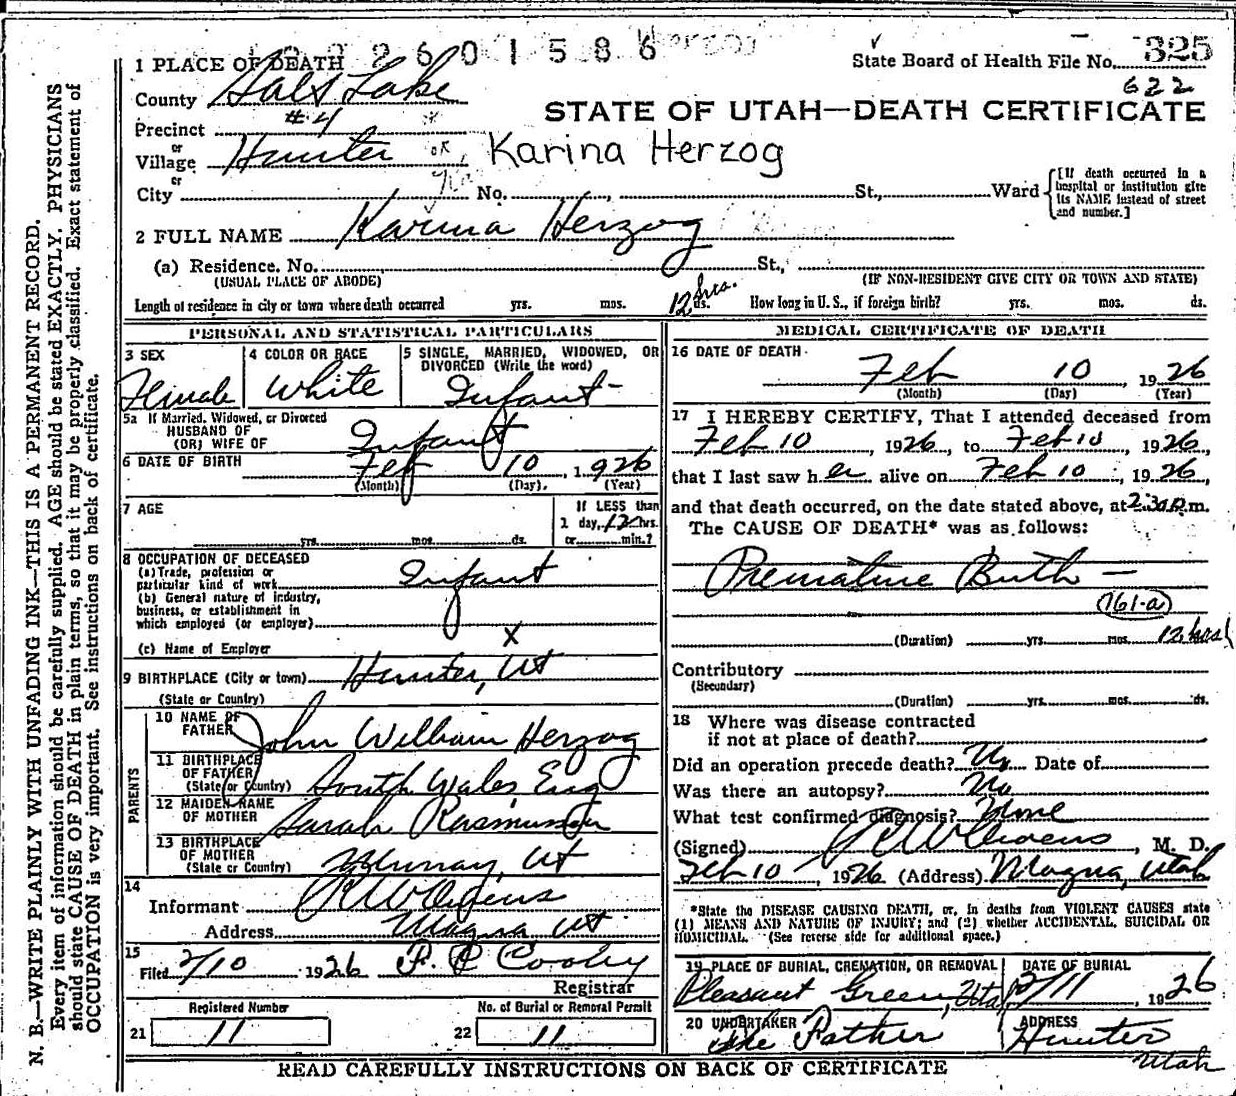 2601586 Herzog
1 PLACE OF DEATH
State Board of Health File No. 325
622
County Salt Lake
STATE OF UTAH—DEATH CERTIFICATE
Precinct #4
or
Village Hunter
Karina Herzog
or
City No. St., Ward
[If death occurred in a hospital or institution give its NAME instead of street and number.]
2 FULL NAME Karina Herzog
(a) Residence. No. St.,
(USUAL PLACE OF ABODE) (IF NON-RESIDENT GIVE CITY OR TOWN AND STATE)
Length of residence in city or town where death occurred yrs. mos. 12 hrs. ds. How long in U. S., if foreign birth? yrs. mos. ds.
PERSONAL AND STATISTICAL PARTICULARS
3 SEX
Female
4 COLOR OR RACE
White
5 SINGLE, MARRIED, WIDOWED, OR DIVORCED (Write the word)
Infant
5a If Married, Widowed, or Divorced
HUSBAND OF
(OR) WIFE OF Infant
6 DATE OF BIRTH Feb 10, 1926
(Month) (Day). (Year)
7 AGE
yrs. mos. ds.
If LESS than
1 day, 12 hrs.
or min.?
8 OCCUPATION OF DECEASED
(a) Trade, profession or
particular kind of work Infant
(b) General nature of industry,
business, or establishment in
which employed (or employer)
(c) Name of Employer X
9 BIRTHPLACE (City or town) Hunter, Ut
(State or Country)
PARENTS
10 NAME OF FATHER John William Herzog
11 BIRTHPLACE OF FATHER (State or Country) South Wales, Eng
12 MAIDEN NAME OF MOTHER Sarah Rasmussen
13 BIRTHPLACE OF MOTHER (State or Country) Murray, Ut
14
Informant
Address Magna Ut
15
Filed 2/10 1926
Registrar
Registered Number
21 11
No. of Burial or Removal Permit
22 11
MEDICAL CERTIFICATE OF DEATH
16 DATE OF DEATH
Feb 10 1926
(Month) (Day) (Year)
17 I HEREBY CERTIFY, That I attended deceased from
Feb 10, 1926 to Feb 10, 1926
that I last saw her alive on Feb 10, 1926,
and that death occurred, on the date stated above, at 2:30 P.m.
The CAUSE OF DEATH* was as follows:
Premature Birth —
161-a
(Duration) yrs. mos. 12 hrs
Contributory
(Secondary)
(Duration) yrs. mos. ds.
18 Where was disease contracted
if not at place of death?
Did an operation precede death? No Date of
Was there an autopsy? No
What test confirmed diagnosis? None
(Signed) , M. D.
Feb 10, 1926 (Address) Magna, Utah
*State the DISEASE CAUSING DEATH, or, in deaths from VIOLENT CAUSES state
(1) MEANS AND NATURE OF INJURY; and (2) whether ACCIDENTAL, SUICIDAL OR
HOMICIDAL. (See reverse side for additional space.)
19 PLACE OF BURIAL, CREMATION, OR REMOVAL
Pleasant Green, Utah
DATE OF BURIAL
2/11, 1926
20 UNDERTAKER
The Father
ADDRESS
Hunter
Utah
READ CAREFULLY INSTRUCTIONS ON BACK OF CERTIFICATE
N. B.—WRITE PLAINLY WITH UNFADING INK—THIS IS A PERMANENT RECORD.
Every item of information should be carefully supplied. AGE should be stated EXACTLY. PHYSICIANS
should state CAUSE OF DEATH in plain terms, so that it may be properly classified. Exact statement of
OCCUPATION is very important. See instructions on back of certificate.